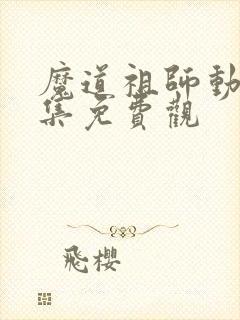 魔道祖師動
集免費觀
飛櫻